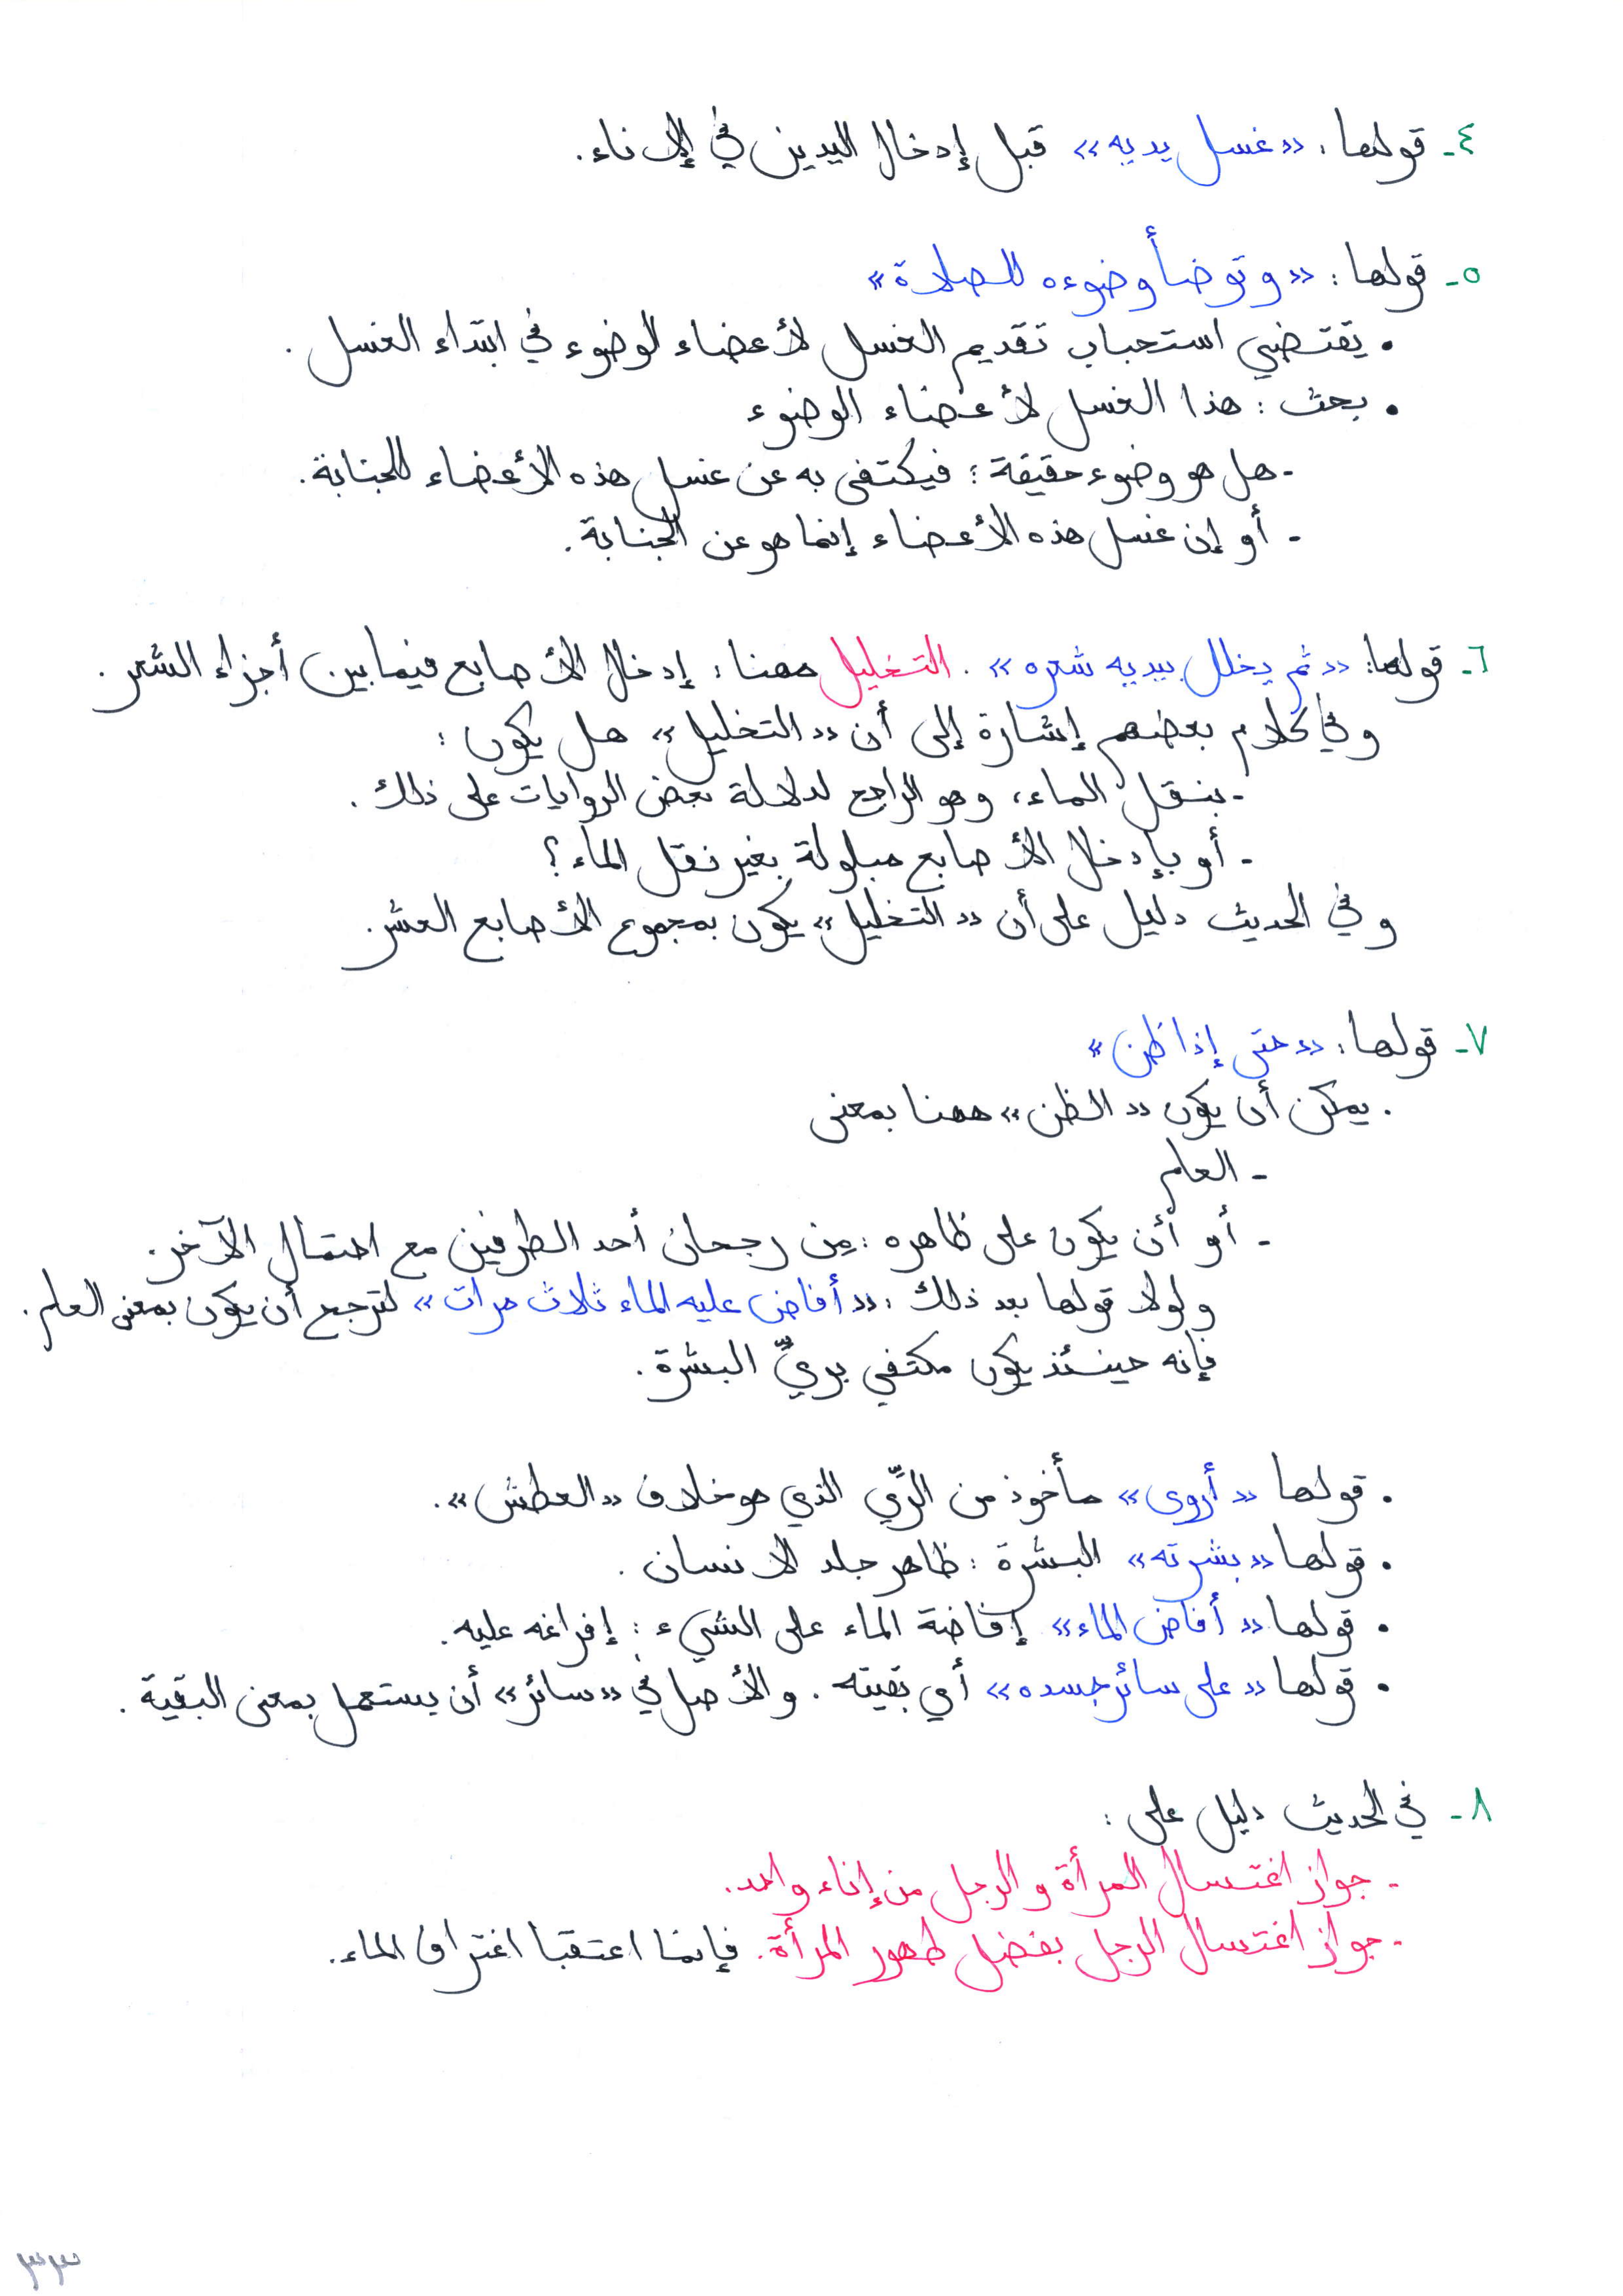 ٤- قولها: «غسل يديه» قبل إدخال اليدين في الإناء.
٥- قولها: «وتوضأ وضوءه للصلاة»
• يقتضي استحباب تقديم الغسل لأعضاء الوضوء في ابتداء الغسل.
• بحث: هذا الغسل لأعضاء الوضوء
- هل هو وضوء حقيقة؛ فيكتفى به عن غسل هذه الأعضاء للجنابة.
- أو إن غسل هذه الأعضاء إنما هو عن الجنابة.
٦- قولها: «ثم يخلل بيديه شعره». التخليل ههنا: إدخال الأصابع فيما بين أجزاء الشعر.
وفي كلام بعضهم إشارة إلى أن «التخليل» هل يكون:
- بنقل الماء، وهو الراجح لدلالة بعض الروايات على ذلك.
- أو بإدخال الأصابع مبلولة بغير نقل الماء؟
وفي الحديث دليل على أن «التخليل» يكون بمجموع الأصابع العشر.
٧- قولها: «حتى إذا ظن»
• يمكن أن يكون «الظن» ههنا بمعنى
- العلم
- أو أن يكون على ظاهره: مِن رجحان أحد الطرفين مع احتمال الآخر.
ولولا قولها بعد ذلك: «أفاض عليه الماء ثلاث مرات» لترجح أن يكون بمعنى العلم.
فإنه حينئذ يكون مكتفي بريِّ البشرة.
• قولها «أروى» مأخوذ من الرِّي الذي هو خلاف «العطش».
• قولها «بشرته» البشرة: ظاهر جلد الانسان.
• قولها «أفاض الماء» إفاضة الماء على الشيء: إفراغه عليه.
• قولها «على سائر جسده» أي بقيته. والأصل في «سائر» أن يستعمل بمعنى البقية.
٨- في الحديث دليل على:
- جواز اغتسال المرأة والرجل من إناء واحد.
- جواز اغتسال الرجل بفضل طهور المرأة. فإنما اعتقبا اغتراف الماء.
٣٣